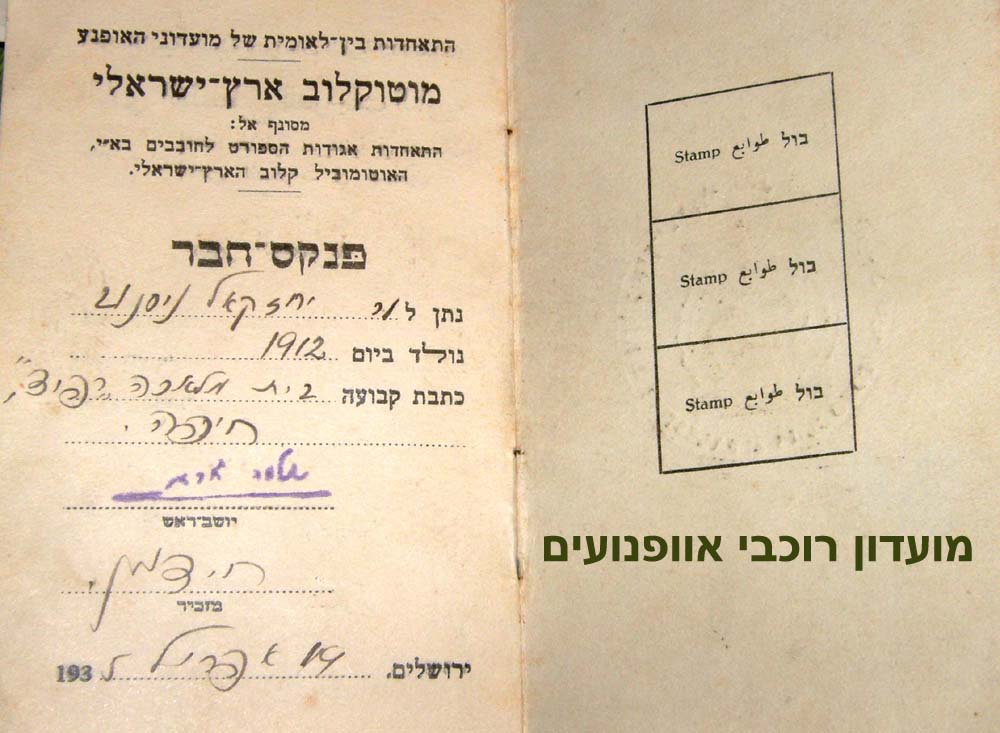 התאחדות בין־לאומית של מועדוני האופנע
מוטוקלוב ארץ־ישראלי
מסונף אל:
התאחדות אגודות הספורט לחובבים בא״י,
האוטומוביל קלוב הארץ־ישראלי.
פנקס־חבר
נתן ל יחזקאל ניסנוב
נולד ביום 1912
כתבת קבועה בית מלאכה „רפיד״,
חיפה.
יושב־ראש
מזכיר
ירושלים. 19 אפריל 193
בול طوابع Stamp
בול طوابع Stamp
בול طوابع Stamp
מועדון רוכבי אוופנועים